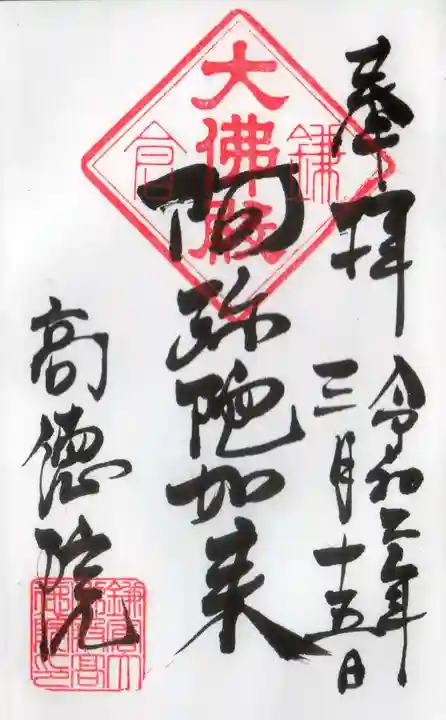 奉拝
令和二年
三月十五日
鎌倉
大佛殿
阿弥陀如来
高徳院